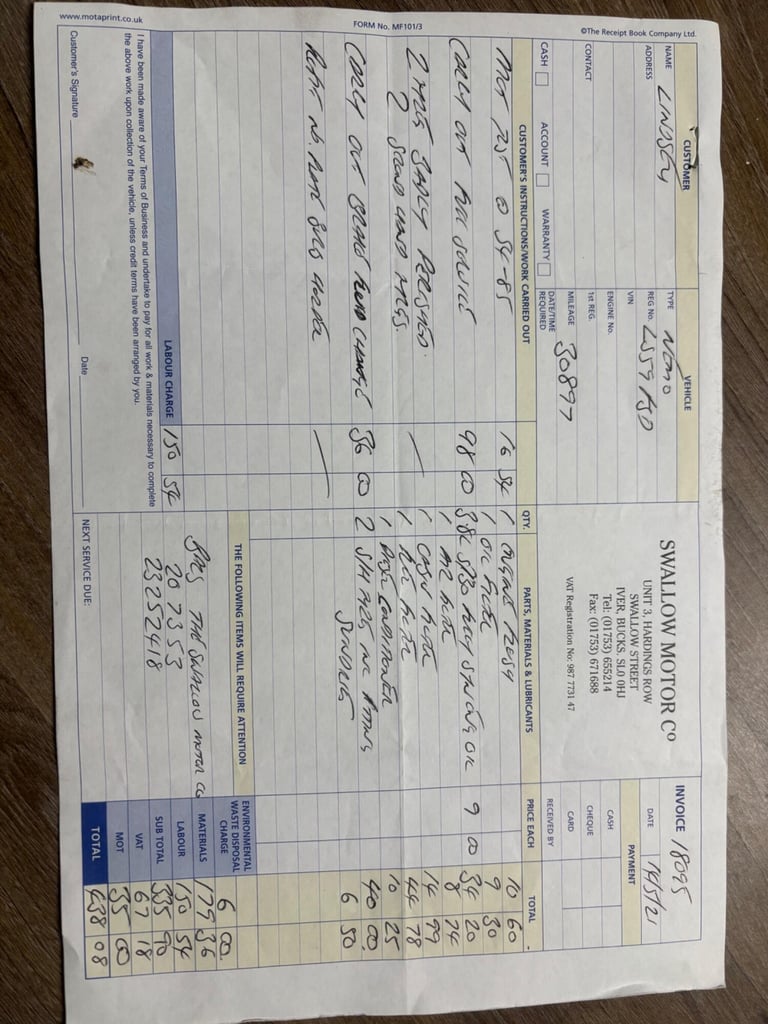 www.motaprint.co.uk
FORM No. MF101/3
©The Receipt Book Company Ltd.
CUSTOMER
NAME LINDSEY
ADDRESS
CONTACT
CASH
ACCOUNT
WARRANTY
VEHICLE
TYPE NEMO
REG No.
VIN
ENGINE No.
1st REG.
MILEAGE 30897
DATE/TIME REQUIRED
SWALLOW MOTOR Co
UNIT 3, HARDINGS ROW
SWALLOW STREET
IVER, BUCKS. SL0 0HJ
Tel: (01753) 655214
Fax: (01753) 671688
VAT Registration No: 987 7731 47
INVOICE 18095
DATE 14/5/21
PAYMENT
CASH
CHEQUE
CARD
RECEIVED BY
CUSTOMER'S INSTRUCTIONS/WORK CARRIED OUT
MOT TEST @ 54-85 16 54
CARRY OUT FULL SERVICE 98 00
2 TYRES BADLY PERISHED.
2 SECOND HAND TYRES. —
CARRY OUT BRAKE FLUID CHANGE 36 00
—
LABOUR CHARGE 150 54
QTY.
PARTS, MATERIALS & LUBRICANTS
PRICE EACH
TOTAL
1 ENGINE FLUSH 10 60
1 OIL FILTER 9 30
3.8L 5/30 FULLY SYN ENG OIL 9 00 34 20
1 AIR FILTER 8 74
1 CABIN FILTER 14 99
1 FUEL FILTER 44 78
1 CONDITIONER 10 25
2 S/H TYRES INC FITTING 40 00
SUNDRIES 6 50
THE FOLLOWING ITEMS WILL REQUIRE ATTENTION
BACS THE SWALLOW MOTOR CO
20 73 53
23252418
NEXT SERVICE DUE:
ENVIRONMENTAL WASTE DISPOSAL CHARGE 6 00
MATERIALS 179 36
LABOUR 150 54
SUB TOTAL 335 90
VAT 67 18
MOT 35 00
TOTAL 438 08
I have been made aware of your Terms of Business and undertake to pay for all work & materials necessary to complete
the above work upon collection of the vehicle, unless credit terms have been arranged by you.
Customer's Signature
Date